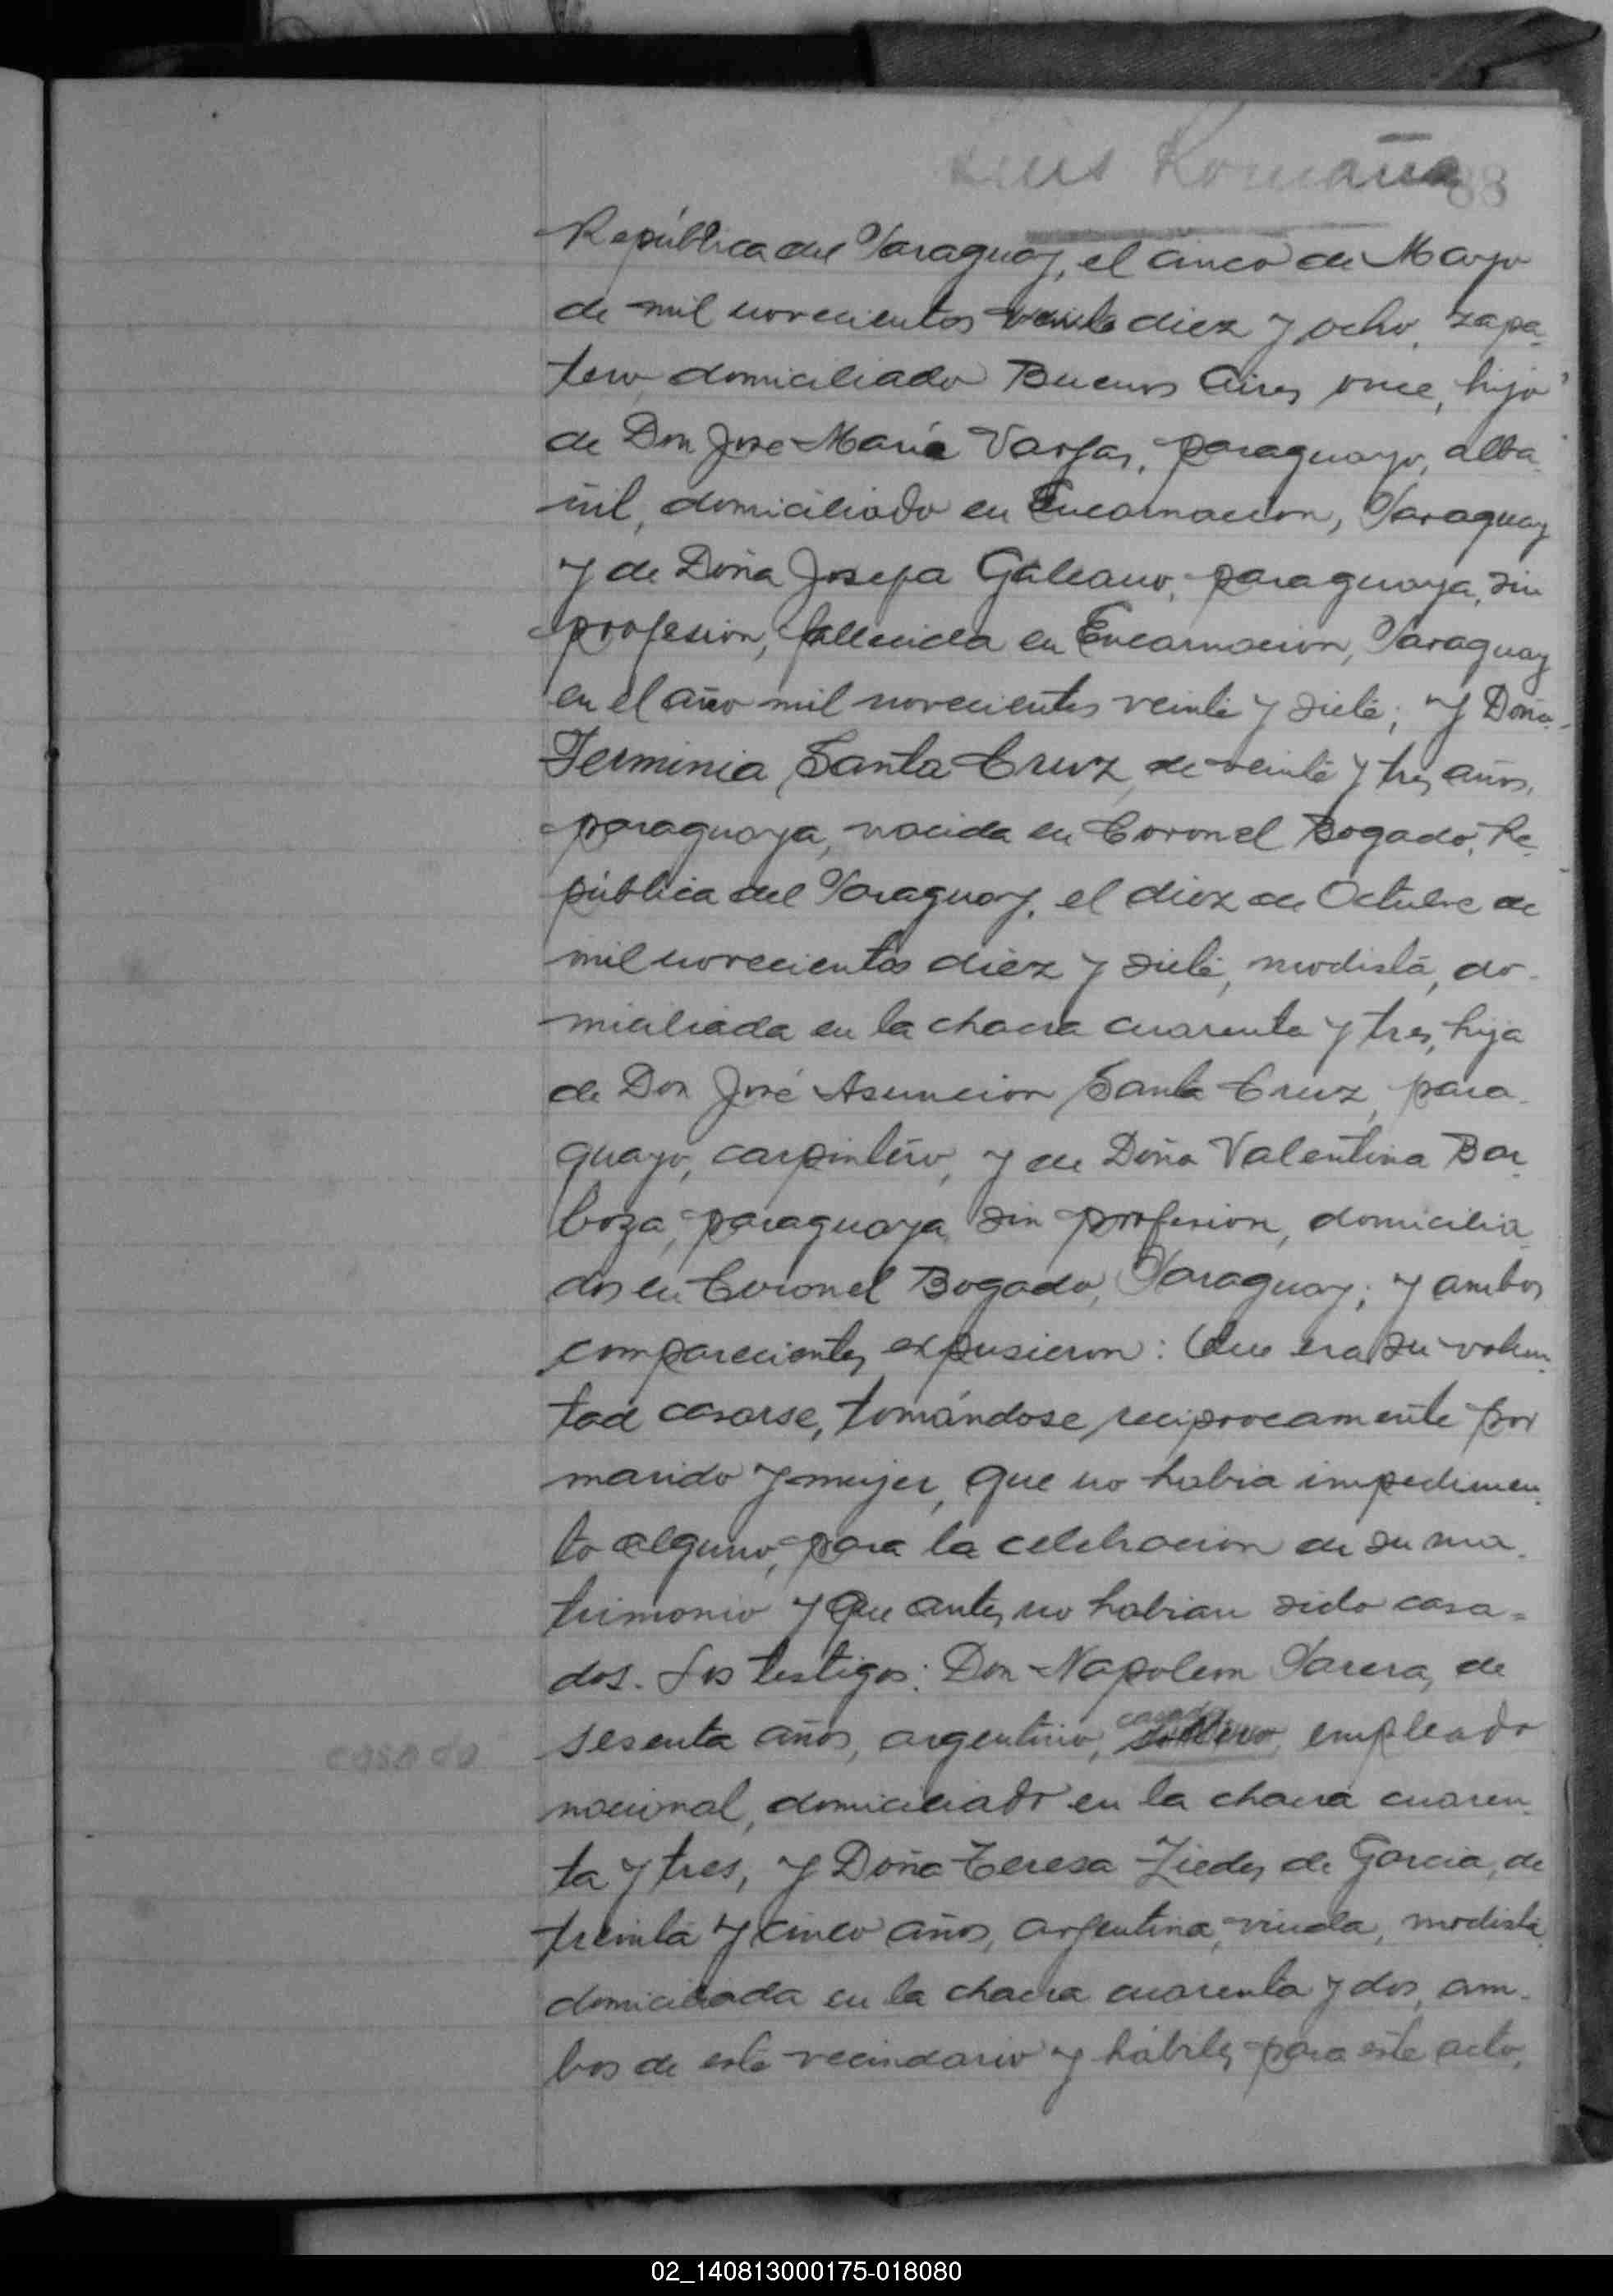 Luis Romaña 88
República del Paraguay, el cinco de Mayo
de mil novecientos diez y ocho, zapa-
tero, domiciliado Buenos Aires once, hijo
de Don José María Vargas, paraguayo, alba-
ñil, domiciliado en Encarnacion, Paraguay
y de Doña Josefa Galeano, paraguaya, sin
profesion, fallecida en Encarnacion, Paraguay
en el año mil novecientos veinte y siete; y Doña
Ferminia Santa Cruz, de veinte y tres años,
paraguaya, nacida en Coronel Bogado, Re-
pública del Paraguay, el diez de Octubre de
mil novecientos diez y siete, modista, do-
miciliada en la chacra cuarenta y tres, hija
de Don José Asuncion Santa Cruz, para-
guayo, carpintero, y de Doña Valentina Bar-
boza, paraguaya, sin profesion, domicilia-
dos en Coronel Bogado, Paraguay; y ambos
comparecientes expusieron: Que era su volun-
tad casarse, tomándose reciprocamente por
marido y mujer, que no habia impedimen-
to alguno, para la celebracion de su ma-
trimonio y que antes no habian sido casa-
dos. Los testigos: Don Napoleon Parera, de
casado
casado sesenta años, argentino, soltero, empleado
nacional, domiciliado en la chacra cuaren-
ta y tres, y Doña Teresa Ziedes de Garcia, de
treinta y cinco años, argentina, viuda, modista
domiciliada en la chacra cuarenta y dos, am-
bos de este vecindario y hábiles para este acto,
02_140813000175-018080